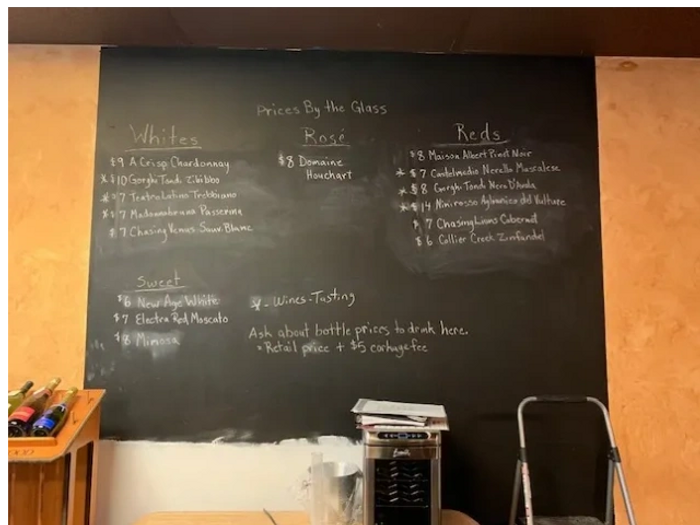 Prices By the Glass
Whites
$9 A Crisp Chardonnay
* $10 Gorghi Tondi Zibibbo
* $7 Teatro Latino Trebbiano
* $7 Madonnabruna Passerina
$7 Chasing Venus Sauv. Blanc
Rosé
$8 Domaine
Houchart
Reds
$8 Maison Albert Pinot Noir
* $7 Cantelmedio Nerello Mascalese
* $8 Gorghi Tondi Nero D'Avola
* $14 Minirosso Aglianico del Vulture
$7 Chasing Lions Cabernet
$6 Collier Creek Zinfandel
Sweet
$6 New Age White
$7 Electra Red Moscato
$8 Mimosa
* - Wines-Tasting
Ask about bottle prices to drink here.
* Retail price + $5 corkage fee